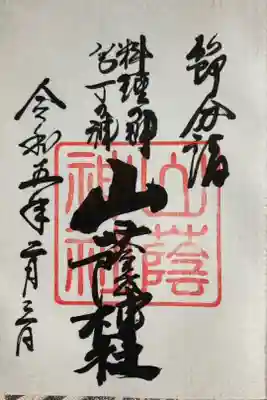 節分詣
料理神
包丁神
山蔭神社
令和五年二月三日
山蔭神社